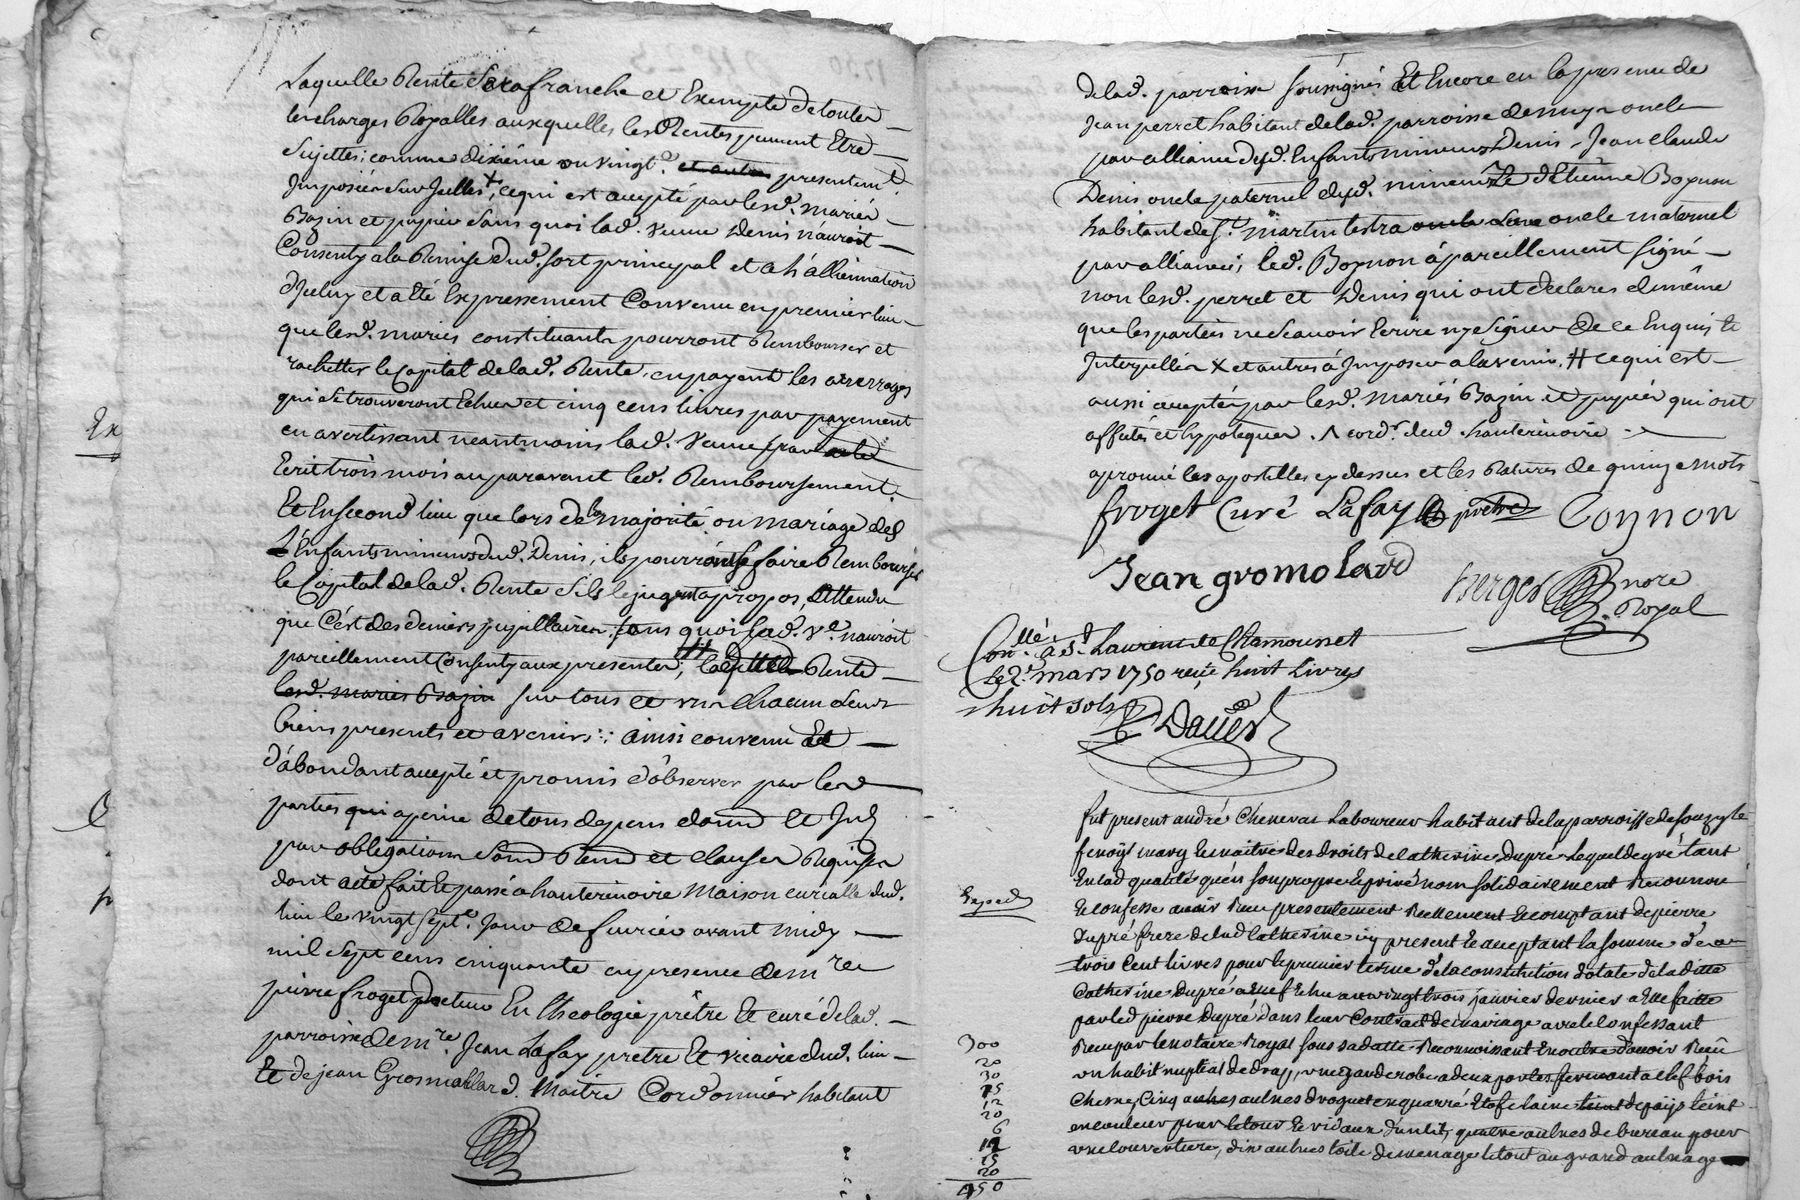 Laquelle Rente sera franche et Exempte de toutes
les charges Royalles auxquelles les Rentes peuvent Etre
Sujettes; comme dixiéme ou vingt.e et autres presentem.t
Imposées sur Icelles X, ce qui est accepté par lesd. mariés
Bazin et pupier sans quoi lad. veuve Denis n'auroit
Consenty a la Remise dud. sort principal et a l'allienation
d'Iceluy et a eté Expressement Convenu en premier lieu
que lesd. mariés constituants pourront Rembourser et
rachetter le Capital de lad. Rente, en payant les arerrages
qui se trouveront Echus et cinq cens livres par payement
en avertissant neantmoins lad. veuve par
Ecrit trois mois auparavant led. Remboursement.
Et En second lieu que lors de la majorité ou mariage des
Enfants mineurs dud. Denis, ils pourront se faire Rembourser
le Capital de lad. Rente s'ils le jugent a propos, Attendu
que C'est des deniers pupillaires, sans quoi lad. V.e n'auroit
pareillement Consenty aux presentes; # laquelle Rente
lesd. mariés Bazin sur tous et un chacun leurs
biens presents et avenirs: ainsi convenu Et
d'abondant accepté et promis d'observer par lesd
parties qui a peine de tous depens domm Et Int
par obligations soum Renon et clauses Requises
dont acte fait Et passé a hauterivoire Maison curialle dud.
lieu le vingt sept.e Jour de fevrier avant midy
mil sept cens cinquante en presence de m.re
pierre froget Docteur En theologie prêtre Et curé de lad.
parroisse de m.re Jean Lafay pretre Et vicaire dud. lieu
Et de jean Gromollard Maitre Cordonnier habitant
delad. parroisse soussignés Et Encore en la presence de
Jean perret habitant de lad. parroisse de oncle
par alliance desd. Enfants mineurs Denis, Jean claude
Denis oncle paternel desd. mineurs Et d'Etienne Bognon
habitant de S.t martin lestra oncle maternel
par alliance; led. Bognon a pareillement signé
non lesd. perret et Denis qui ont declarés de même
que les parties ne sçavoir Ecrire ny signer de ce Enquis Et
Interpellés X et autres à Imposer a l'avenir. # ce qui est
aussi accepté par lesd. mariés Bazin et pupier qui ont
affecté et hypotequer. dud. hauterivoire
aprouvé les apostilles cy dessus et les Ratures de quinze mots
froget Curé Lafay prêtre Cognon
Jean gromolard
Berger no.re
Royal
Con.llé a S.t Laurent de Chamousset
le 2.e mars 1750 reçu huit Livres
huit sols
Daver
fut present andré Chenevas Laboureur habitant de la parroisse de souzy le
fenoÿl mary Et maitre des droits de Catherine dupré Lequel de gré tant
En lad qualité qu'en son propre Et privé nom solidairement Reconnoit
Et confesse avoir Reçu presentement Reellement Et comptant de pierre
Dupré frere de lad Catherine icy present Et acceptant la somme de
trois Cent livres pour le premier terme de la constitution dotale de la ditte
Catherine Dupré a Echu au vingt trois janvier dernier a Elle faitte
par led pierre Dupré dans leur Contract de mariage avec le Confessant
Reçu par le notaire Royal sous sa datte Reconnoissant En outre d'avoir Reçu
un habit nuptial de drap, une garderobe a deux portes fermant a clef bois
chesne, Cinq aulnes droguet en quarré Etofe laine de païs teint
en couleur pour le tour Et rideaux d'un lit, quatre aulnes de bureau pour
une couverture, dix aulnes toile de menage le tout au grand aulnage
Exped
300
20
30
15
12
20
6
12
15
20
450